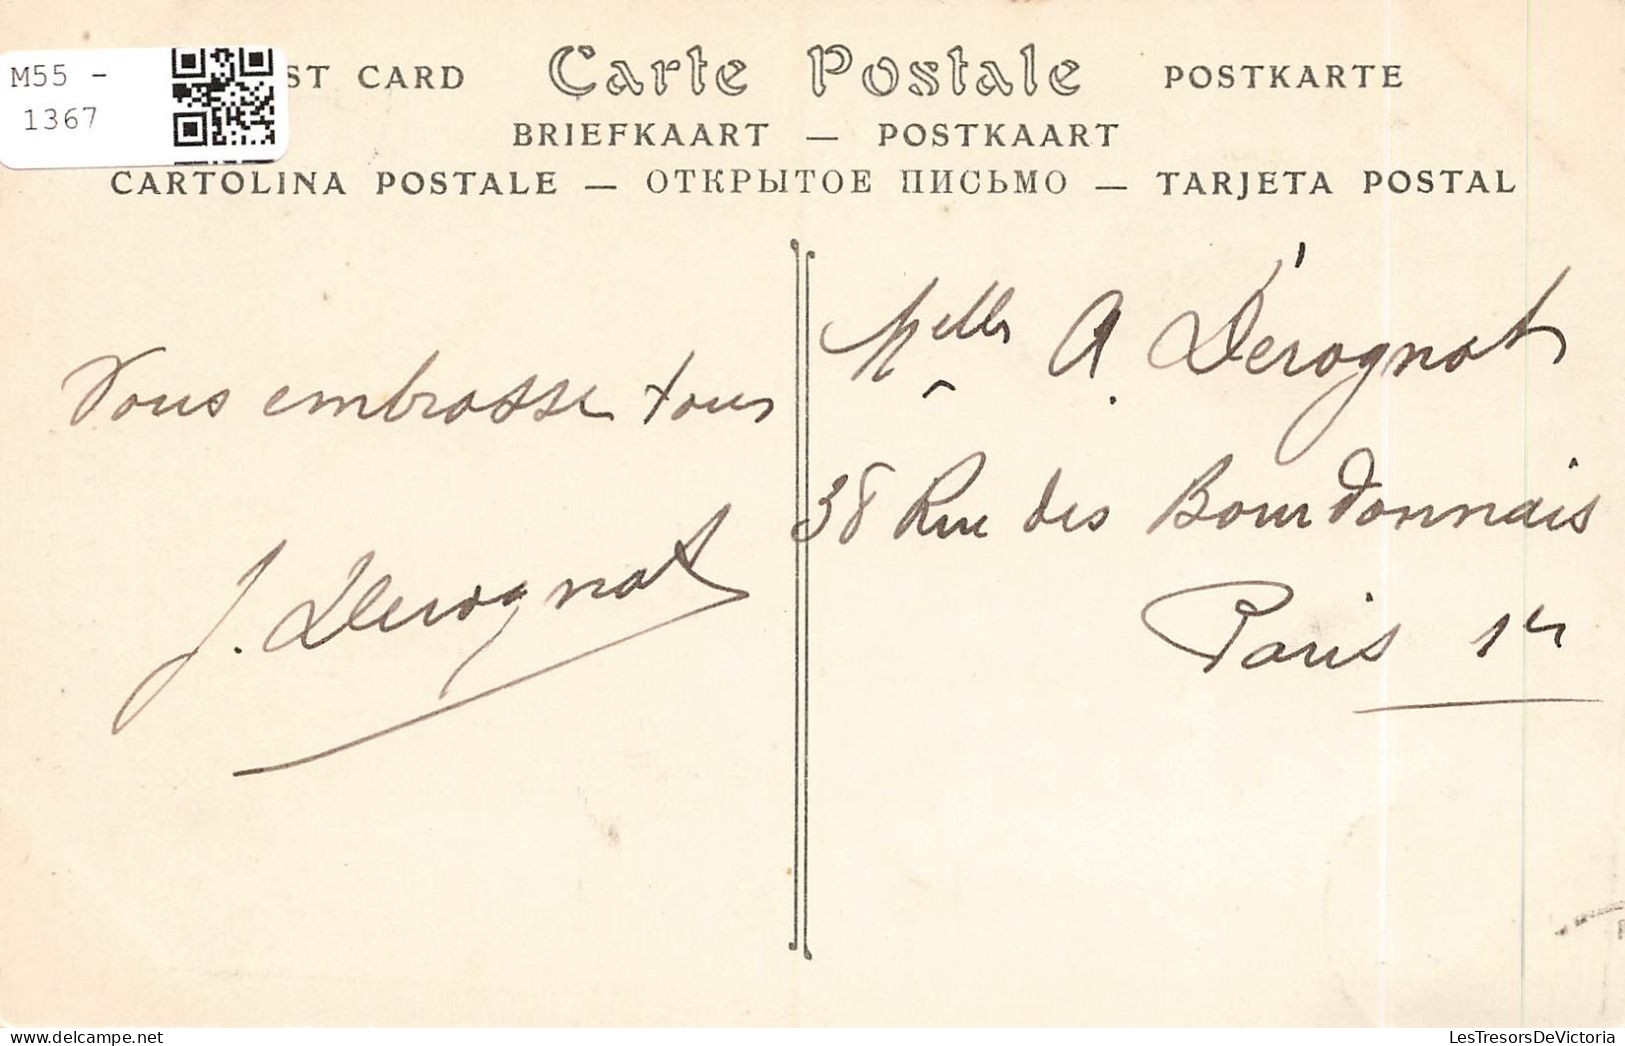 M55 -
1367
ST CARD
Carte Postale
POSTKARTE
BRIEFKAART — POSTKAART
CARTOLINA POSTALE — ОТКРЫТОЕ ПИСЬМО — TARJETA POSTAL
Vous embrasse tous
J. Derognat
Melle A. Dérognat
38 Rue des Bourdonnais
Paris 1er
LesTresorsDeVictoria